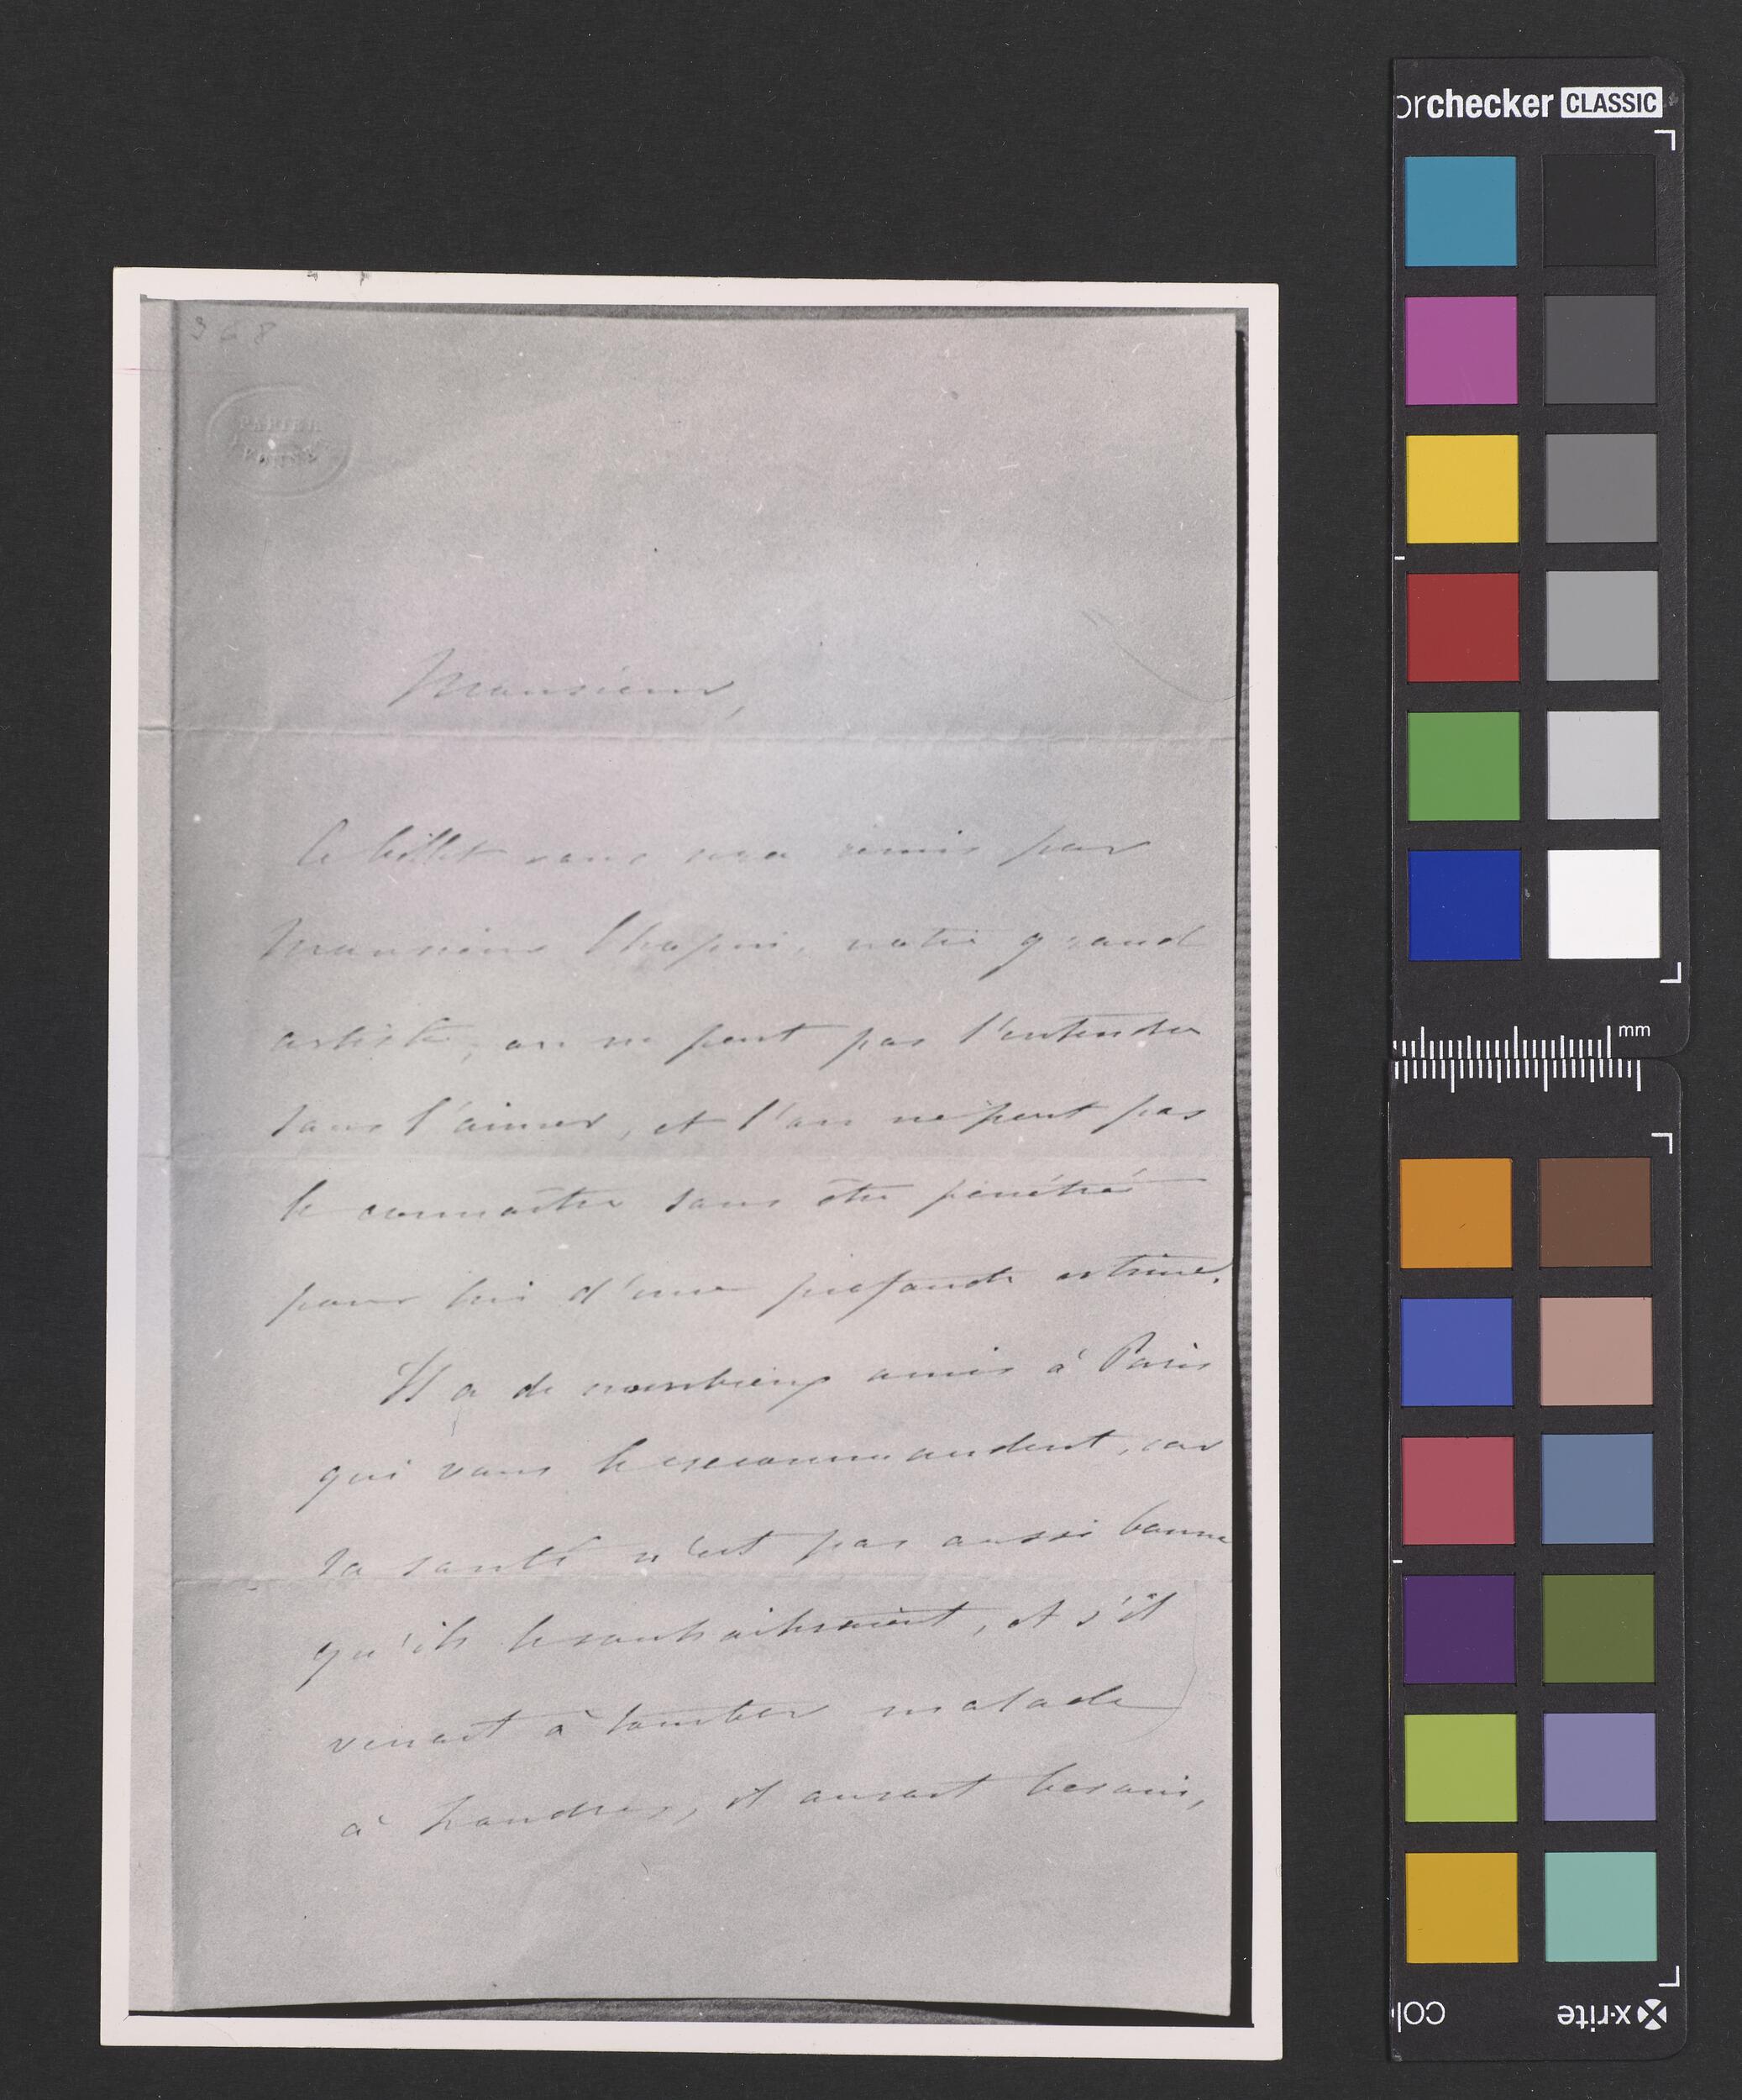 orchecker CLASSIC
368
Monsieur,
Ce billet vous sera remis par
Monsieur Chopin, notre grand
artiste, on ne peut pas l'entendre
sans l'aimer, et l'on ne peut pas
le connaître sans être pénétré
pour lui d'une profonde estime.
Il a de nombreux amis à Paris
qui vous le recommandent, car
sa santé n'est pas aussi bonne
qu'ils le souhaiteraient, et s'il
venait à tomber malade
à Londres, il aurait besoin,
mm
x·rite
col